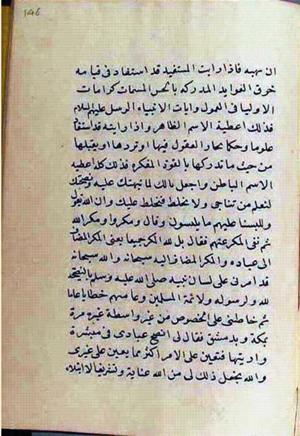 ان سهبه فاذا رايت المستفيد قد استفاد في قيامه
خرق العوايد المدركه بالحس المسمات كرامات
الاوليا في العموم وايات الانبياء والرسل عليهم السلام
فذلك اعطية الاسم الظاهر واذا رايته قد استفاد
علوما وحكما تحار العقول فيها او تردها او يقبلها
من حيث ما تدركها بالقوة المفكره فذلك كله اعطيه
الاسم الباطن واجعل بالك لما نبهتك عليه ونصحتك
لتعلم من تناجي ولا تخلط فيخلط عليك وان الله يقول
وللبسنا عليهم ما يلبسون وقال ومكروا ومكر الله
ثم نفى المكر عنهم فقال بل لله المكر جميعا يعني المكر المضاف
الى عباده والمكر المضاف اليه سبحانه والله سبحانه
قد امرني على لسان نبيه صلى الله عليه وسلم بالنصح
لله ولرسوله ولائمة المسلمين وعامتهم خطابا عاما
ثم خاطبني على الخصوص من غير واسطة غيره مرة
بمكة وبدمشق فقال لي انصح عبادي في مبشرة
واريتها فتعين علي الامر اكثر مما يعين على غيري
والله يجعل ذلك لي من الله عناية وتشريفا لا ابتلاء